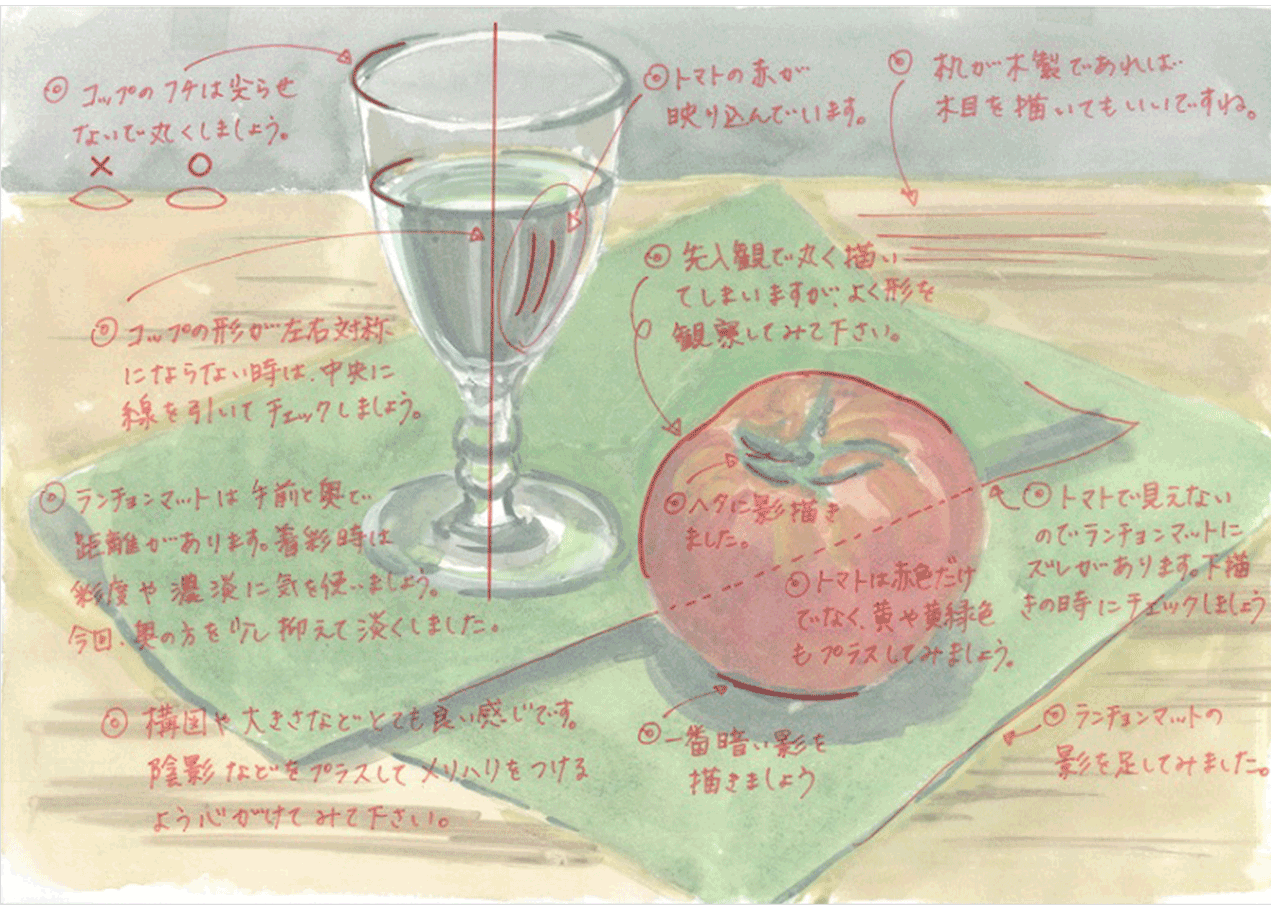 ◎ コップのフチは尖らせ
ないで丸くしましょう。
× ○
◎ トマトの赤が
映り込んでいます。
◎ 机が木製であれば
木目を描いてもいいですね。
◎ 先入観で丸く描い
てしまいますが、よく形を
観察してみて下さい。
◎ コップの形が左右対称
にならない時は、中央に
線を引いてチェックしましょう。
◎ ランチョンマットは手前と奥で
距離があります。着彩時は
彩度や濃淡に気を使いましょう。
今回、奥の方を少し抑えて淡くしました。
◎ ヘタに影描き
ました。
◎ トマトで見えない
のでランチョンマットに
ズレがあります。下描
きの時にチェックしましょう
◎ トマトは赤色だけ
でなく、黄や黄緑色
もプラスしてみましょう。
◎ 構図や大きさなどとても良い感じです。
陰影などをプラスしてメリハリをつける
よう心がけてみて下さい。
◎ 一番暗い影を
描きましょう
◎ ランチョンマットの
影を足してみました。